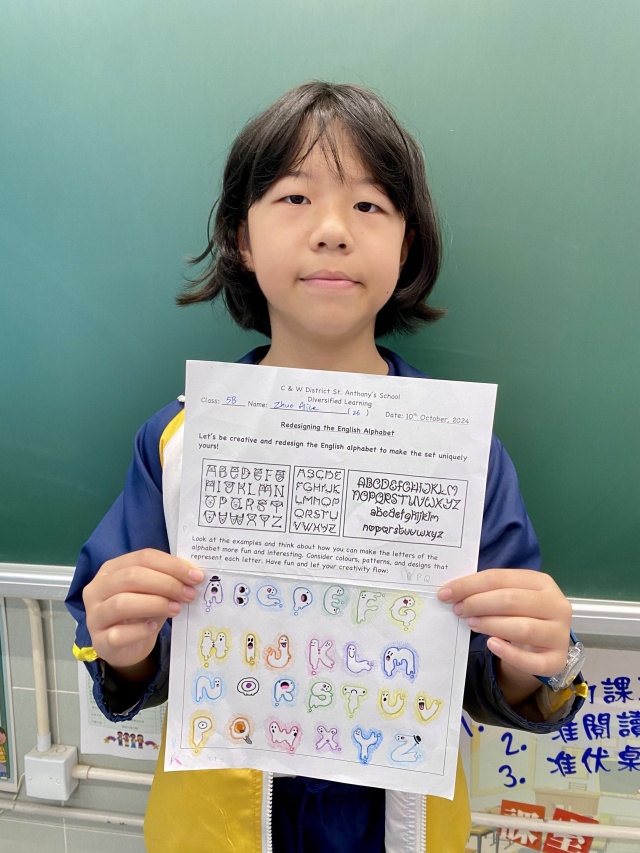 C & W District St. Anthony's School
Diversified Learning
Class: 5B Name: Zhuo Alice (26) Date: 10th October, 2024
Redesigning the English Alphabet
Let's be creative and redesign the English alphabet to make the set uniquely
yours!
ABCDEFG
HIJKLMN
OPQRST
UVWXYZ
ABCDE
FGHIJK
LMNOP
QRSTU
VWXYZ
ABCDEFGHIJKLM
NOPQRSTUVWXYZ
abcdefghijklm
nopqrstuvwxyz
Look at the examples and think about how you can make the letters of the
alphabet more fun and interesting. Consider colours, patterns, and designs that
represent each letter. Have fun and let your creativity flow:
A B C D E F G
H I J K L M
N O R S T U V
P Q W X Y Z
1.
2. 准閱讀
3. 准伏桌
課室